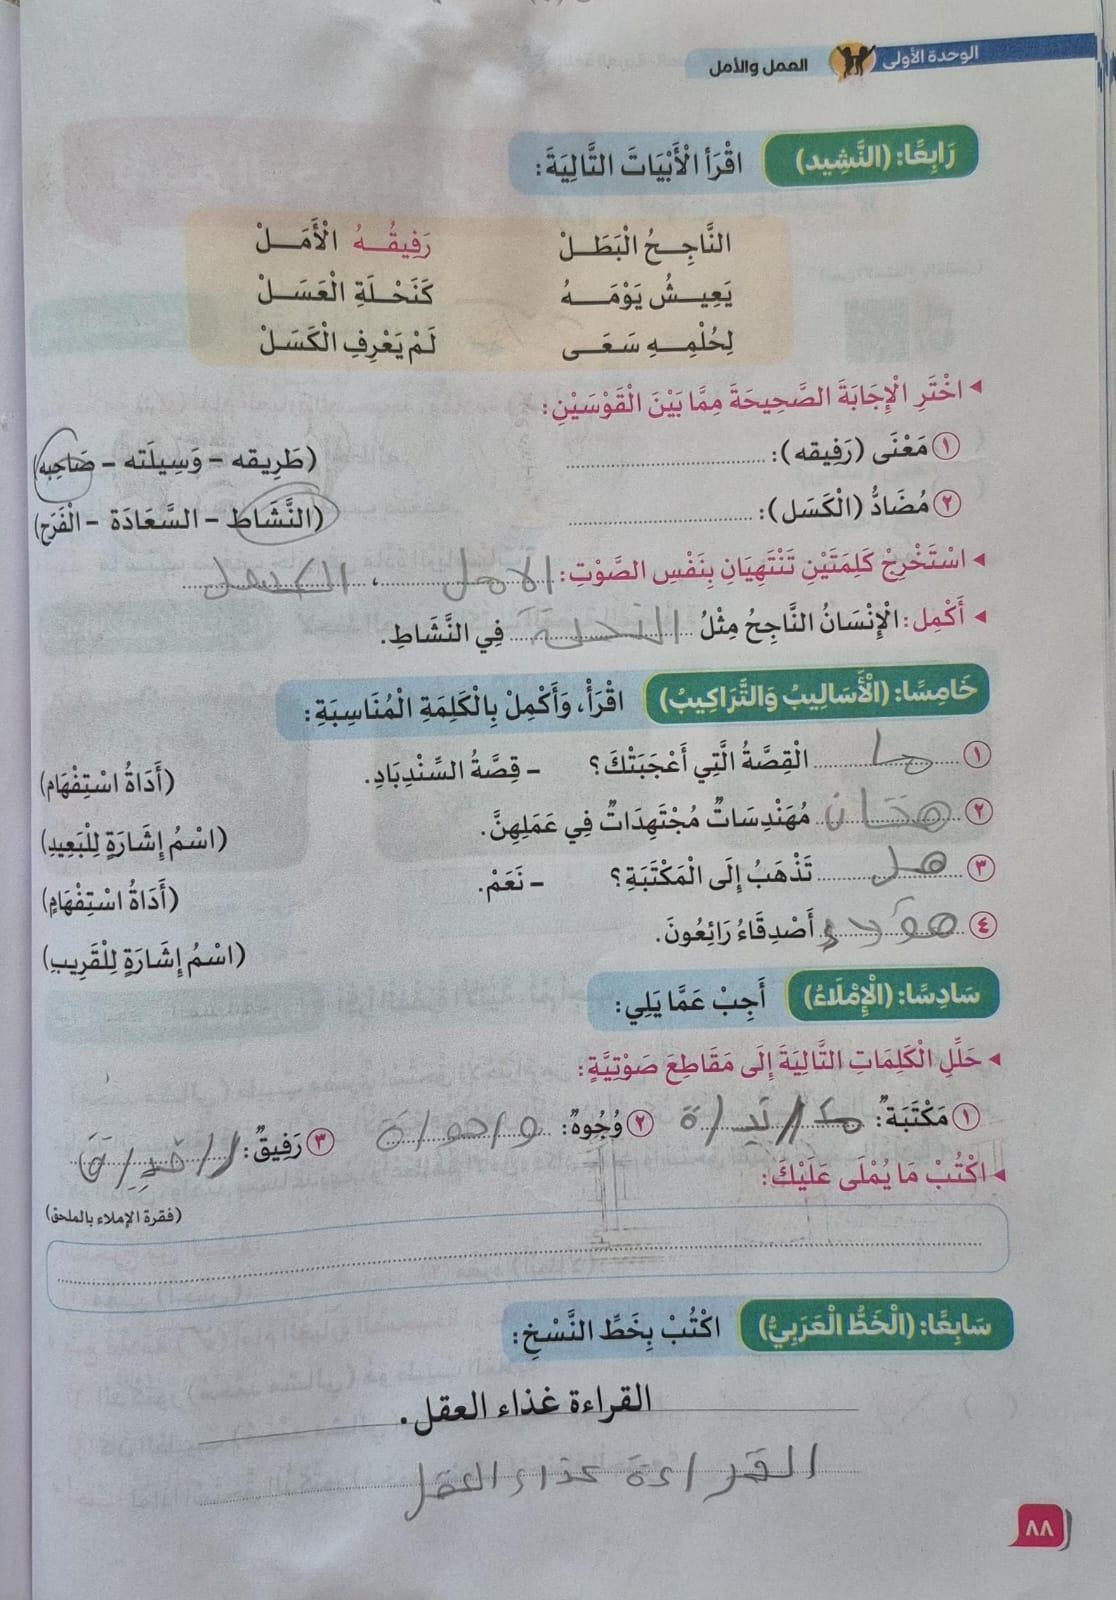 الوحدة الأولى العمل والأمل
رَابِعًا: (النَّشِيد) اقْرَأِ الْأَبْيَاتَ التَّالِيَةَ:
النَّاجِـحُ الْبَطَـلْ رَفِيقُـهُ الْأَمَـلْ
يَعِيـشُ يَوْمَـهُ كَنَحْلَةِ الْعَسَـلْ
لِحُلْمِـهِ سَعَـى لَمْ يَعْرِفِ الْكَسَلْ
◂ اخْتَرِ الْإِجَابَةَ الصَّحِيحَةَ مِمَّا بَيْنَ الْقَوْسَيْنِ:
١ مَعْنَى (رَفِيقه): (طَرِيقه – وَسِيلَته – صَاحِبه)
٢ مُضَادُّ (الْكَسَل): (النَّشَاط – السَّعَادَة – الْفَرَح)
◂ اسْتَخْرِجْ كَلِمَتَيْنِ تَنْتَهِيَانِ بِنَفْسِ الصَّوْتِ: الامل ، الكسل
◂ أَكْمِل: الْإِنْسَانُ النَّاجِحُ مِثْلُ النحلة فِي النَّشَاطِ.
خَامِسًا: (الْأَسَالِيبُ وَالتَّرَاكِيبُ) اقْرَأْ، وَأَكْمِلْ بِالْكَلِمَةِ الْمُنَاسِبَةِ:
١ ما الْقِصَّةُ الَّتِي أَعْجَبَتْكَ؟ – قِصَّةُ السِّنْدِبَادِ. (أَدَاةُ اسْتِفْهَام)
٢ مُهَنْدِسَاتٌ مُجْتَهِدَاتٌ فِي عَمَلِهِنَّ. (اسْمُ إِشَارَةٍ لِلْبَعِيدِ)
٣ هل تَذْهَبُ إِلَى الْمَكْتَبَةِ؟ – نَعَمْ. (أَدَاةُ اسْتِفْهَامٍ)
٤ أَصْدِقَاءُ رَائِعُونَ. (اسْمُ إِشَارَةٍ لِلْقَرِيبِ)
سَادِسًا: (الْإِمْلَاءُ) أَجِبْ عَمَّا يَلِي:
◂ حَلِّلِ الْكَلِمَاتِ التَّالِيَةَ إِلَى مَقَاطِعَ صَوْتِيَّةٍ:
١ مَكْتَبَةٌ: ٢ وُجُوهٌ: ٣ رَفِيقٌ:
◂ اكْتُبْ مَا يُمْلَى عَلَيْكَ:
(فقرة الإملاء بالملحق)
سَابِعًا: (الْخَطُّ الْعَرَبِيُّ) اكْتُبْ بِخَطِّ النَّسْخِ:
القراءة غذاء العقل.
القراءة غذاء العقل
٨٨